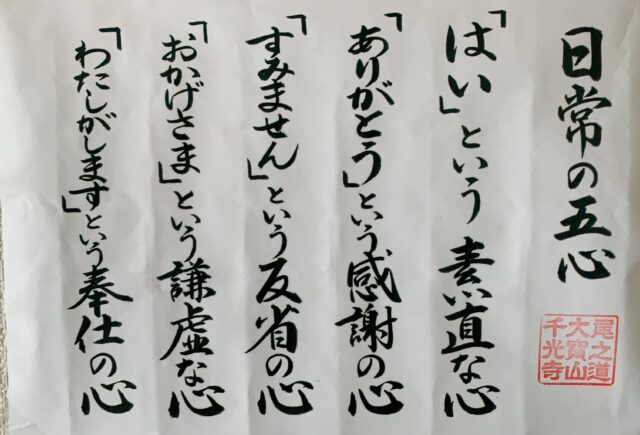 日常の五心
「はい」という素直な心
「ありがとう」という感謝の心
「すみません」という反省の心
「おかげさま」という謙虚な心
「わたしがします」という奉仕の心
尾之道
大寳山
千光寺